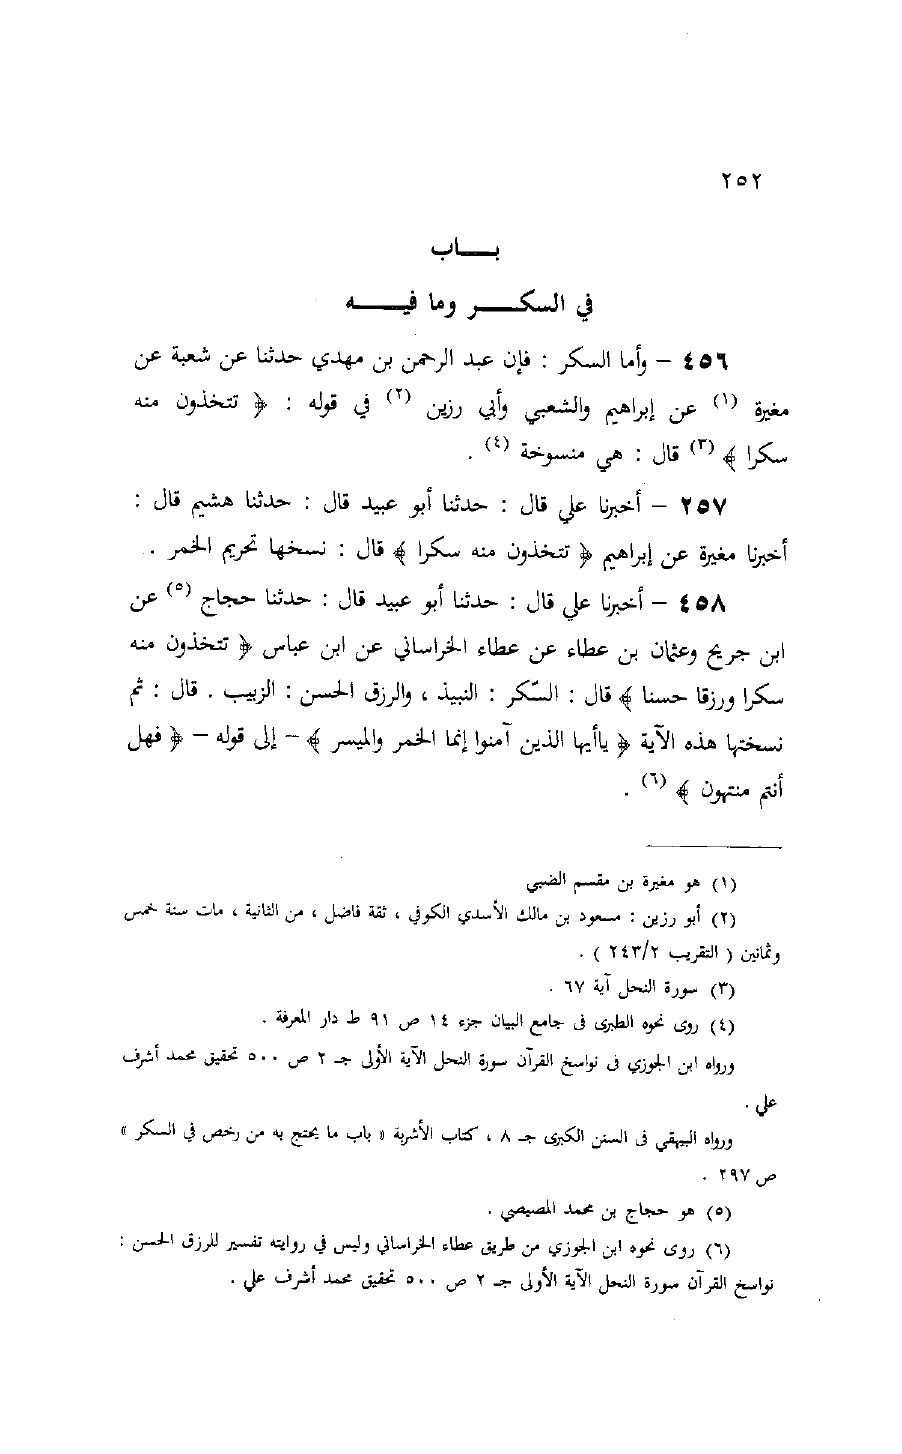 ٢٥٢
بـــاب
في السكـــر وما فيـــه
٤٥٦ – وأما السكر : فإن عبد الرحمن بن مهدي حدثنا عن شعبة عن
مغيرة (١) عن إبراهيم والشعبي وأبي رزين (٢) في قوله : ﴿ تتخذون منه
سكرا ﴾ (٣) قال : هي منسوخة (٤) .
٢٥٧ – أخبرنا علي قال : حدثنا أبو عبيد قال : حدثنا هشيم قال :
أخبرنا مغيرة عن إبراهيم ﴿ تتخذون منه سكرا ﴾ قال : نسخها تحريم الخمر .
٤٥٨ – أخبرنا علي قال : حدثنا أبو عبيد قال : حدثنا حجاج (٥) عن
ابن جريج وعثمان بن عطاء عن عطاء الخراساني عن ابن عباس ﴿ تتخذون منه
سكرا ورزقا حسنا ﴾ قال : السّكر : النبيذ ، والرزق الحسن : الزبيب . قال : ثم
نسختها هذه الآية ﴿ ياأيها الذين آمنوا إنما الخمر والميسر ﴾ – إلى قوله – ﴿ فهل
أنتم منتهون ﴾ (٦) .
(١) هو مغيرة بن مقسم الضبي
(٢) أبو رزين : مسعود بن مالك الأسدي الكوفي ، ثقة فاضل ، من الثانية ، مات سنة خمس
وثمانين ( التقريب ٢٤٣/٢ ) .
(٣) سورة النحل آية ٦٧ .
(٤) روى نحوه الطبرى فى جامع البيان جزء ١٤ ص ٩١ ط دار المعرفة .
ورواه ابن الجوزي فى نواسخ القرآن سورة النحل الآية الأولى جـ ٢ ص ٥٠٠ تحقيق محمد أشرف
علي .
ورواه البيهقي فى السنن الكبرى جـ ٨ ، كتاب الأشربة « باب ما يحتج به من رخص في السكر »
ص ٢٩٧ .
(٥) هو حجاج بن محمد المصيصي .
(٦) روى نحوه ابن الجوزي من طريق عطاء الخراساني وليس في روايته تفسير للرزق الحسن :
نواسخ القرآن سورة النحل الآية الأولى جـ ٢ ص ٥٠٠ تحقيق محمد أشرف علي .